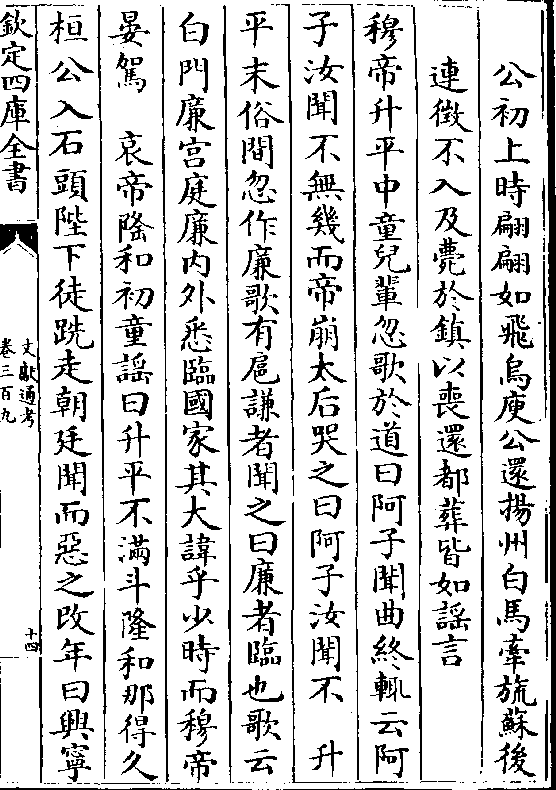 公初上時翩翩如飛烏庾公還揚州白馬牽旐蘇後
連徵不入及薨於鎮以喪還都葬皆如謡言
穆帝升平中童兒輩忽歌於道曰阿子聞曲終輒云阿
子汝聞不無幾而帝崩太后哭之曰阿子汝聞不　升
平末俗間忽作廉歌有扈謙者聞之曰廉者臨也歌云
白門廉宫庭廉内外悉臨國家其大諱乎少時而穆帝
晏駕　哀帝隆和初童謡曰升平不滿斗隆和那得久
桓公入石頭陛下徒跣走朝廷聞而惡之改年曰興寧
欽定四庫全書
文獻通考
卷三百九
十四